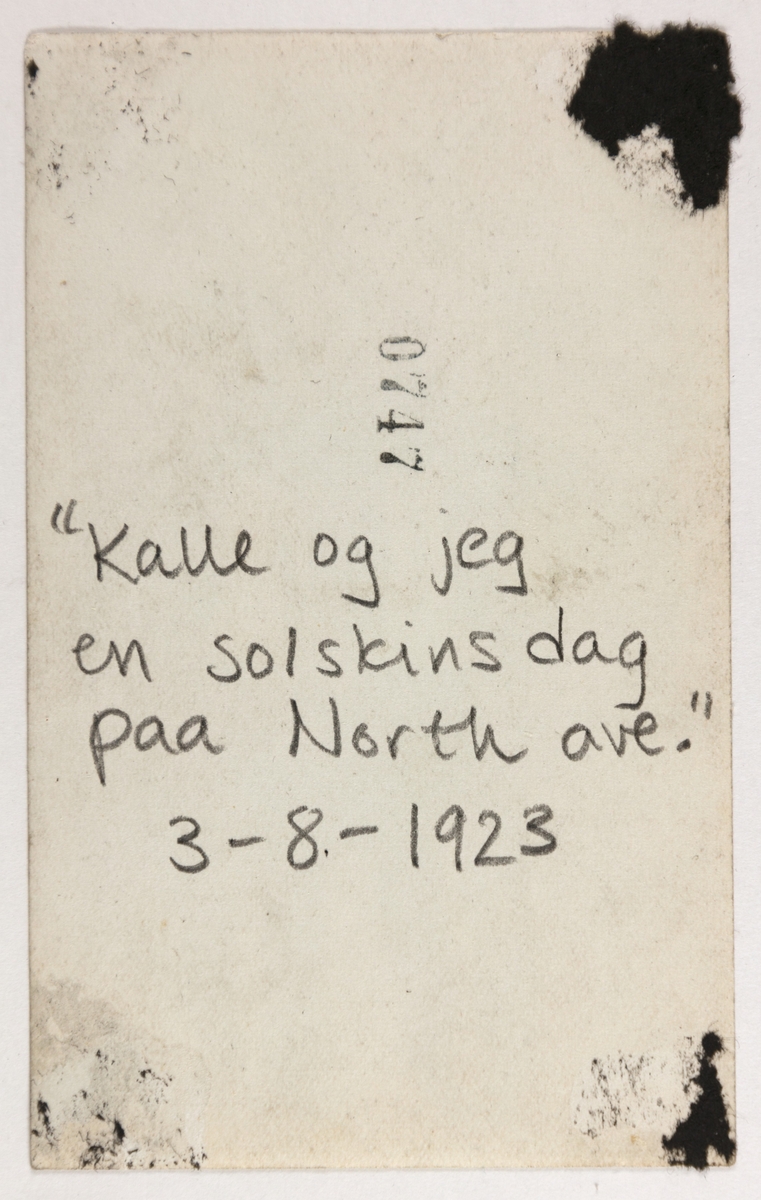 0747
"Kalle og jeg
en solskinsdag
paa North ave."
3-8-1923